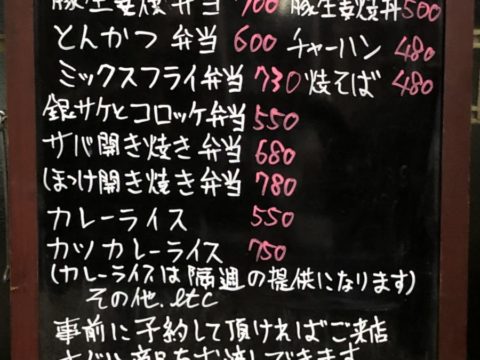 豚生姜焼弁当 700 豚生姜焼丼 500
とんかつ弁当 600 チャーハン 480
ミックスフライ弁当 730 焼そば 480
銀サケとコロッケ弁当 550
サバ開き焼き弁当 680
ほっけ開き焼き弁当 780
カレーライス 550
カツカレーライス 750
(カレーライスは隔週の提供になります)
その他.etc
事前に予約して頂ければご来店